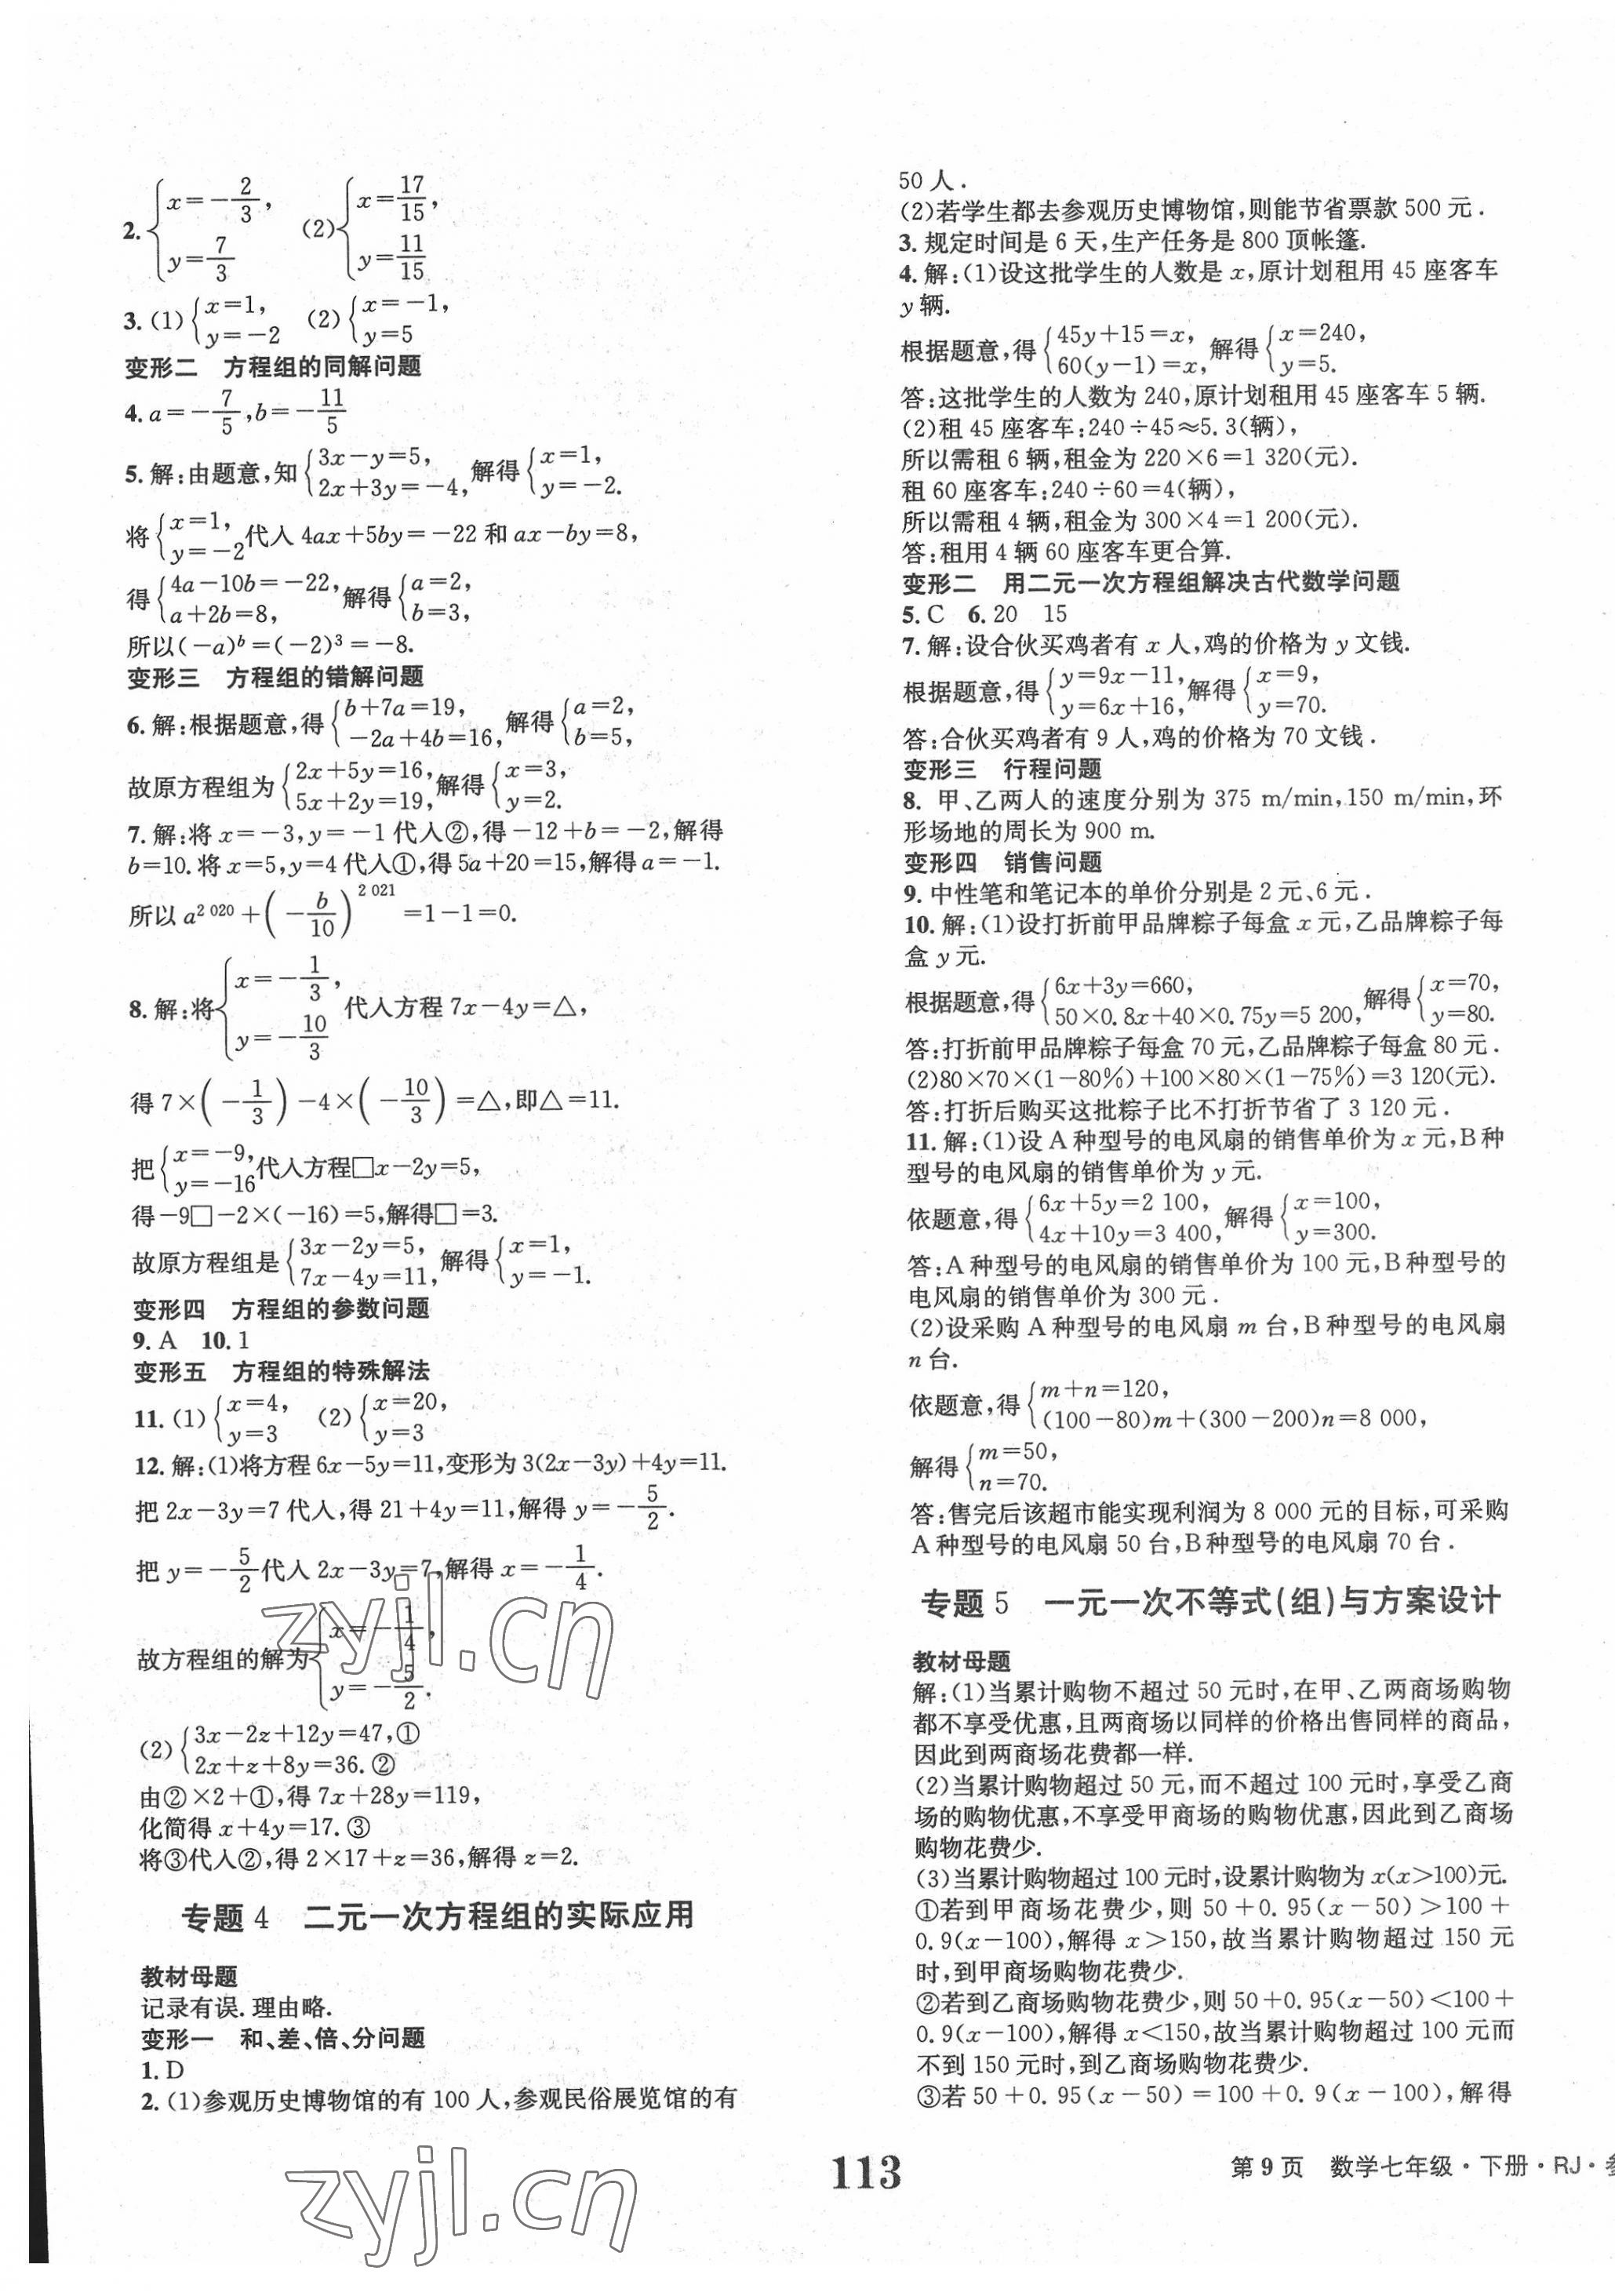 2. { x=-2/3,
y=7/3 (2) { x=17/15,
y=11/15
3. (1) { x=1,
y=-2 (2) { x=-1,
y=5
变形二 方程组的同解问题
4. a=-7/5,b=-11/5
5. 解:由题意,知 { 3x-y=5,
2x+3y=-4, 解得 { x=1,
y=-2.
将 { x=1,
y=-2 代入 4ax+5by=-22 和 ax-by=8,
得 { 4a-10b=-22,
a+2b=8, 解得 { a=2,
b=3,
所以(-a)ᵇ=(-2)³=-8.
变形三 方程组的错解问题
6. 解:根据题意,得 { b+7a=19,
-2a+4b=16, 解得 { a=2,
b=5,
故原方程组为 { 2x+5y=16,
5x+2y=19, 解得 { x=3,
y=2.
7. 解:将 x=-3,y=-1 代入②,得-12+b=-2,解得
b=10. 将 x=5,y=4 代入①,得 5a+20=15,解得 a=-1.
所以 a^2 020+(-b/10)^2 021=1-1=0.
8. 解:将 { x=-1/3,
y=-10/3 代入方程 7x-4y=△,
得 7×(-1/3)-4×(-10/3)=△,即△=11.
把 { x=-9,
y=-16 代入方程□x-2y=5,
得-9□-2×(-16)=5,解得□=3.
故原方程组是 { 3x-2y=5,
7x-4y=11, 解得 { x=1,
y=-1.
变形四 方程组的参数问题
9. A 10. 1
变形五 方程组的特殊解法
11. (1) { x=4,
y=3 (2) { x=20,
y=3
12. 解:(1)将方程 6x-5y=11,变形为 3(2x-3y)+4y=11.
把 2x-3y=7 代入,得 21+4y=11,解得 y=-5/2.
把 y=-5/2代入 2x-3y=7,解得 x=-1/4.
故方程组的解为 { x=-1/4,
y=-5/2.
(2) { 3x-2z+12y=47,①
2x+z+8y=36. ②
由②×2+①,得 7x+28y=119,
化简得 x+4y=17. ③
将③代入②,得 2×17+z=36,解得 z=2.
专题 4 二元一次方程组的实际应用
教材母题
记录有误. 理由略.
变形一 和、差、倍、分问题
1. D
2. (1)参观历史博物馆的有 100 人,参观民俗展览馆的有
50 人.
(2)若学生都去参观历史博物馆,则能节省票款 500 元.
3. 规定时间是 6 天,生产任务是 800 顶帐篷.
4. 解:(1)设这批学生的人数是 x,原计划租用 45 座客车
y 辆.
根据题意,得 { 45y+15=x,
60(y-1)=x, 解得 { x=240,
y=5.
答:这批学生的人数为 240,原计划租用 45 座客车 5 辆.
(2)租 45 座客车:240÷45≈5. 3(辆),
所以需租 6 辆,租金为 220×6=1 320(元).
租 60 座客车:240÷60=4(辆),
所以需租 4 辆,租金为 300×4=1 200(元).
答:租用 4 辆 60 座客车更合算.
变形二 用二元一次方程组解决古代数学问题
5. C 6. 20 15
7. 解:设合伙买鸡者有 x 人,鸡的价格为 y 文钱.
根据题意,得 { y=9x-11,
y=6x+16, 解得 { x=9,
y=70.
答:合伙买鸡者有 9 人,鸡的价格为 70 文钱.
变形三 行程问题
8. 甲、乙两人的速度分别为 375 m/min,150 m/min,环
形场地的周长为 900 m.
变形四 销售问题
9. 中性笔和笔记本的单价分别是 2 元、6 元.
10. 解:(1)设打折前甲品牌粽子每盒 x 元,乙品牌粽子每
盒 y 元.
根据题意,得 { 6x+3y=660,
50×0. 8x+40×0. 75y=5 200, 解得 { x=70,
y=80.
答:打折前甲品牌粽子每盒 70 元,乙品牌粽子每盒 80 元.
(2)80×70×(1-80%)+100×80×(1-75%)=3 120(元).
答:打折后购买这批粽子比不打折节省了 3 120 元.
11. 解:(1)设 A 种型号的电风扇的销售单价为 x 元,B 种
型号的电风扇的销售单价为 y 元.
依题意,得 { 6x+5y=2 100,
4x+10y=3 400, 解得 { x=100,
y=300.
答:A 种型号的电风扇的销售单价为 100 元,B 种型号的
电风扇的销售单价为 300 元.
(2)设采购 A 种型号的电风扇 m 台,B 种型号的电风扇
n 台.
依题意,得 { m+n=120,
(100-80)m+(300-200)n=8 000,
解得 { m=50,
n=70.
答:售完后该超市能实现利润为 8 000 元的目标,可采购
A 种型号的电风扇 50 台,B 种型号的电风扇 70 台.
专题 5 一元一次不等式(组)与方案设计
教材母题
解:(1)当累计购物不超过 50 元时,在甲、乙两商场购物
都不享受优惠,且两商场以同样的价格出售同样的商品,
因此到两商场花费都一样.
(2)当累计购物超过 50 元,而不超过 100 元时,享受乙商
场的购物优惠,不享受甲商场的购物优惠,因此到乙商场
购物花费少.
(3)当累计购物超过 100 元时,设累计购物为 x(x>100)元.
①若到甲商场花费少,则 50+0. 95(x-50)>100+
0. 9(x-100),解得 x>150,故当累计购物超过 150 元
时,到甲商场购物花费少.
②若到乙商场购物花费少,则 50+0. 95(x-50)<100+
0. 9(x-100),解得 x<150,故当累计购物超过 100 元而
不到 150 元时,到乙商场购物花费少.
③若 50+0. 95(x-50)=100+0. 9(x-100),解得
zyjl.cn
zyjl.cn
113
第 9 页 数学七年级·下册·RJ·